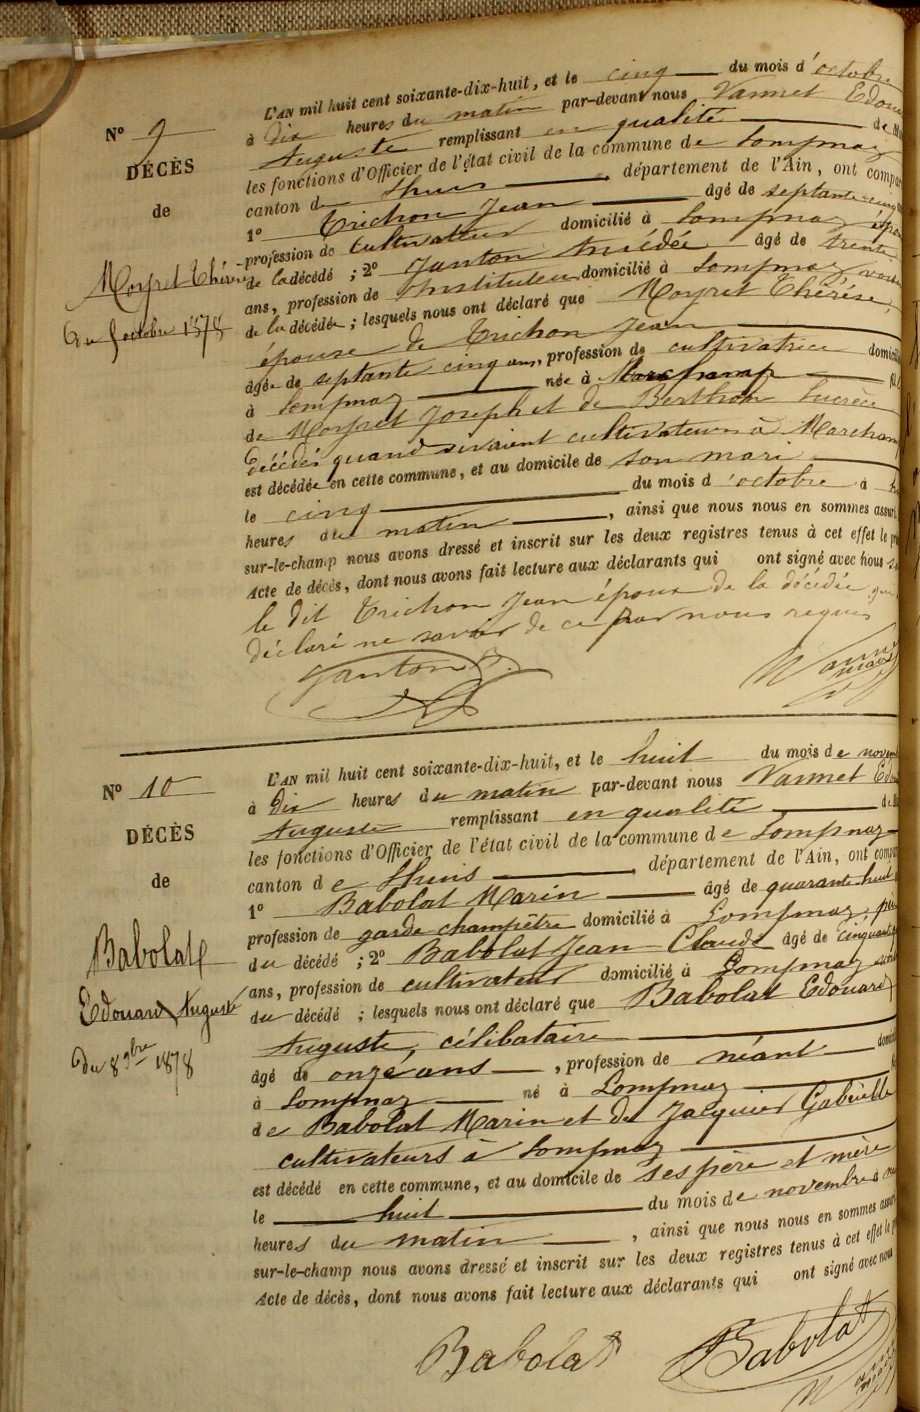 N° 9
DÉCÈS
de
Moyret Thérèse
Du 5 octobre 1878
L'AN mil huit cent soixante-dix-huit, et le cinq du mois d'octobre
à dix heures du matin par-devant nous Vannet Edou
Auguste remplissant en qualité de M
les fonctions d'Officier de l'état civil de la commune de Lompnaz
canton de Lhuis, département de l'Ain, ont compar
1° Trichon Jean âgé de septante cinq
profession de cultivateur domicilié à Lompnaz épou
de la décédé ; 2° Janton Amédée âgé de trente
ans, profession de Instituteur domicilié à Lompnaz vois
de la décédée ; lesquels nous ont déclaré que Moyret Thérèse,
épouse de Trichon Jean
âgée de septante cinq ans, profession de cultivatrice domicili
à Lompnaz née à Marchamp
de Moyret Joseph et de Berthon Lucrèce
décédés quand vivaient cultivateurs à Marcham
est décédée en cette commune, et au domicile de son mari
le cinq du mois d'octobre à
heures du matin, ainsi que nous nous en sommes assur
sur-le-champ nous avons dressé et inscrit sur les deux registres tenus à cet effet le pr
Acte de décès, dont nous avons fait lecture aux déclarants qui ont signé avec nous
le dit Trichon Jean époux de la décédée qui
déclaré ne savoir de ce par nous requis
Janton A.
Vanne
maire
N° 10
DÉCÈS
de
Babolat
Edouard Auguste
Du 8 9bre 1878
L'AN mil huit cent soixante-dix-huit, et le huit du mois de novem
à dix heures du matin par-devant nous Vannet Edou
Auguste remplissant en qualité de M
les fonctions d'Officier de l'état civil de la commune de Lompnaz
canton de Lhuis, département de l'Ain, ont compar
1° Babolat Marin âgé de quarante huit
profession de garde champêtre domicilié à Lompnaz, pè
du décédé ; 2° Babolat Jean-Claude âgé de cinquante
ans, profession de cultivateur domicilié à Lompnaz
du décédé ; lesquels nous ont déclaré que Babolat Edouard
Auguste, célibataire
âgé de onze ans, profession de néant domici
à Lompnaz né à Lompnaz
de Babolat Marin et de Jacquier Gabrielle
cultivateurs à Lompnaz
est décédé en cette commune, et au domicile de ses père et mère
le huit du mois de novembre à
heures du matin, ainsi que nous nous en sommes assur
sur-le-champ nous avons dressé et inscrit sur les deux registres tenus à cet effet le p
Acte de décès, dont nous avons fait lecture aux déclarants qui ont signé avec nous
Babolat Babolat